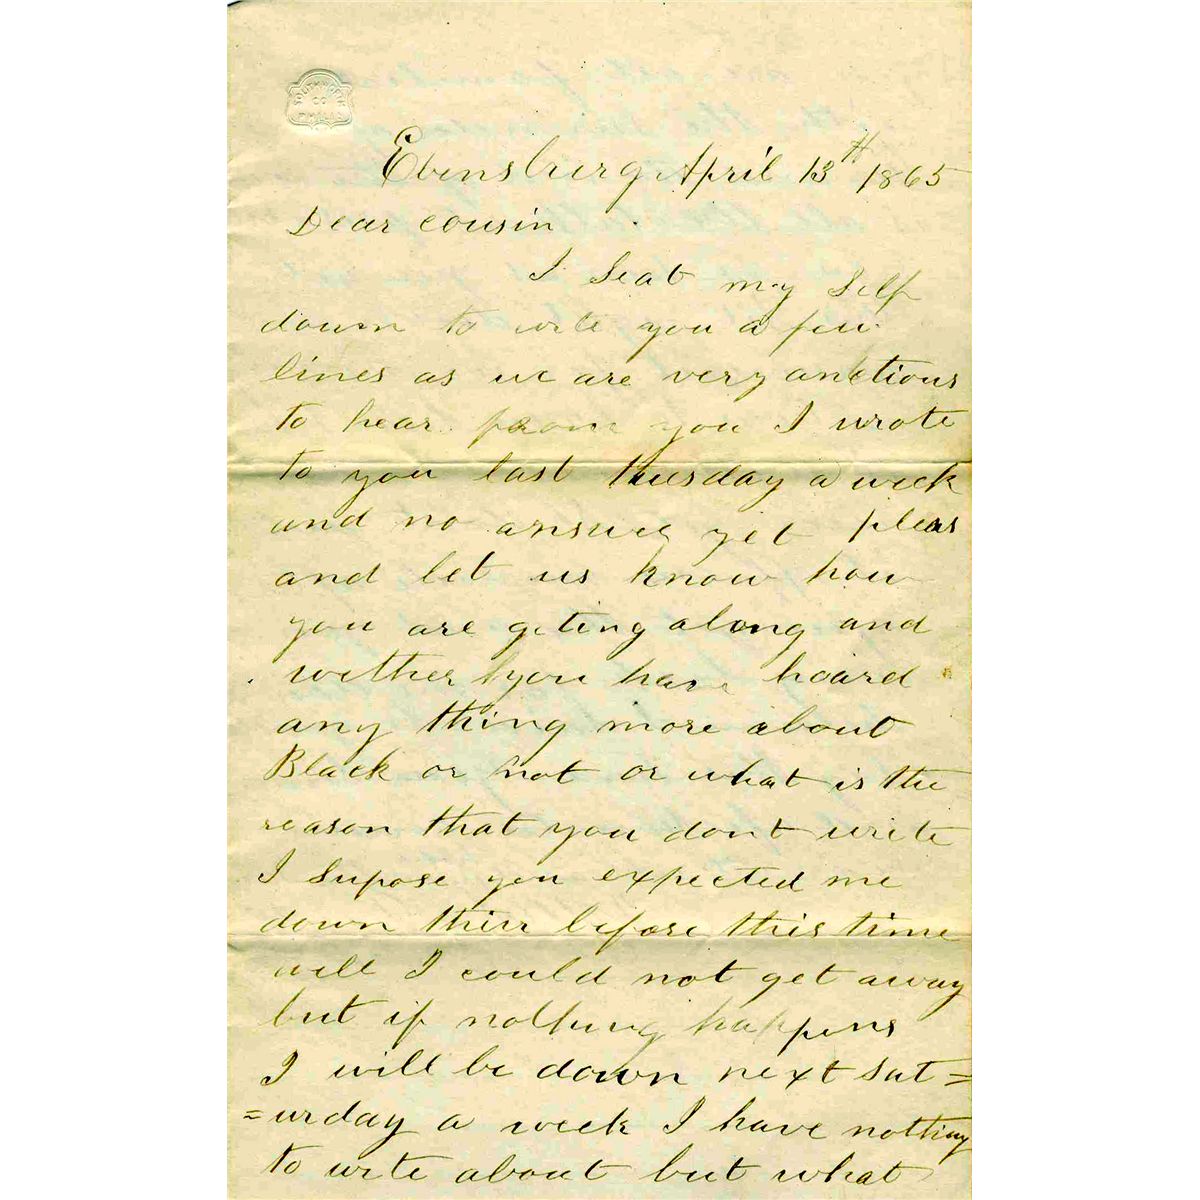 SOUTHWORTH
CO
PHILA
Ebensburg April 13th 1865
Dear cousin
I Seat my Self
down to write you a few
lines as we are very anxtious
to hear from you I wrote
to you last tuesday a week
and no answer yet pleas
and let us know how
you are geting along and
wether you have heard
any thing more about
Black or not or what is the
reason that you dont write
I Supose you expected me
down thier before this time
well I could not get away
but if nothing happens
I will be down next Sat=
=urday a week I have nothing
to write about but what